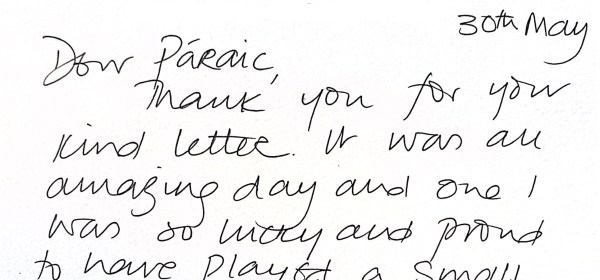 30th May
Dear Páraic,
Thank you for your
kind letter. It was an
amazing day and one I
was so lucky and proud
to have played a small